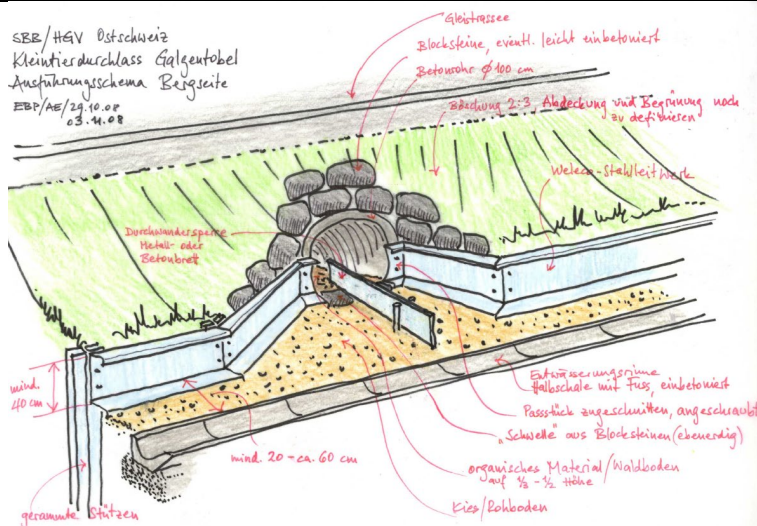 SBB/HGV Ostschweiz
Kleintierdurchlass Galgentobel
Ausführungsschema Bergseite
EBP/AE/29.10.08
03.11.08
Gleistrassee
Blocksteine, eventl. leicht einbetoniert
Betonrohr Ø 100 cm
Böschung 2:3, Abdeckung und Begrünung noch
zu definieren
Weleco-Stahlleitwerk
Durchwandersperre
Metall- oder
Betonbrett
mind.
40 cm
Entwässerungsrinne
Halbschale mit Fuss, einbetoniert
Passstück zugeschnitten, angeschraubt
"Schwelle" aus Blocksteinen (ebenerdig)
mind. 20 - ca. 60 cm
organisches Material/Waldboden
auf ⅓ - ½ Höhe
Kies/Rohboden
gerammte Stützen